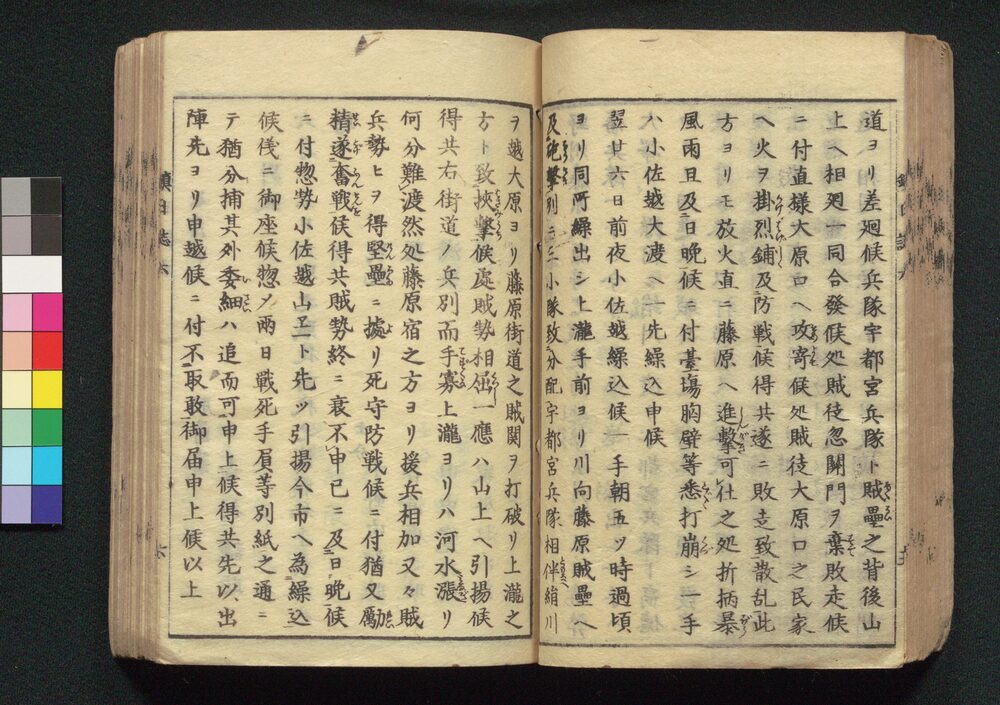 道ヨリ差廻候兵隊宇都宮兵隊ト賊壘之背後山
上ヘ相廻一同合發候処賊徒忽關門ヲ棄敗走候
ニ付直様大原口ヘ攻寄候処賊徒大原口之民家
ヘ火ヲ掛烈鋪及防戦候得共遂ニ敗走致散乱此
方ヨリモ放火直ニ藤原ヘ進撃可仕之処折柄暴
風雨且及日晩候ニ付臺塲胸壁等悉打崩シ一手
ハ小佐越大渡ヘ一先繰込申候
翌廿六日前夜小佐越繰込候一手朝五ツ時過頃
ヨリ同所繰出シ上瀧手前ヨリ川向藤原賊壘ヘ
及砲撃別ニ三小隊致分配宇都宮兵隊相伴絹川
ヲ越大原ヨリ藤原街道之賊関ヲ打破リ上瀧之
方ト致挾撃候處賊勢相屈一應ハ山上ヘ引揚候
得共右街道ノ兵別而手寡上瀧ヨリハ河水漲リ
何分難渡然処藤原宿之方ヨリ援兵相加又々賊
兵勢ヒヲ得堅壘ニ據リ死守防戦候ニ付猶又勵
精遂奮戦候得共賊勢終ニ衰不申已ニ及日晩候
ニ付惣勢小佐越山上ニト先ツ引揚今市ヘ為繰込
候儀ニ御座候惣ノ兩日戦死手屓等別紙之通ニ
テ猶分捕其外委細ハ追而可申上候得共先以出
陣先ヨリ申越候ニ付不取敢御届申上候以上
鎮日誌六
六